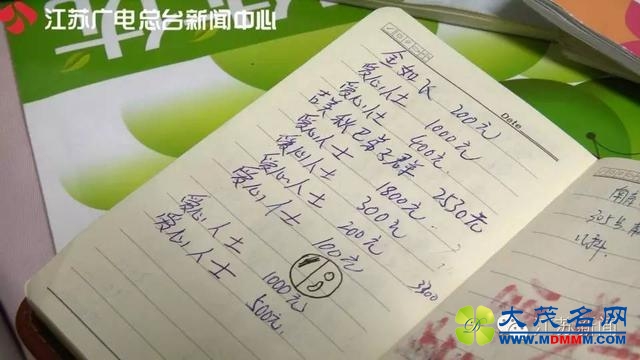 江苏广电总台新闻中心
Date
金如飞 200元
爱心人士 1000元
爱心人士 400元
2530元
爱心人士 1800元
爱心人士 300元
爱心人士 200元
爱心人士 100元
3300
爱心人士 1000元
爱心人士 500元
儿科
江苏新闻
大茂名网
WWW.MDMMM.COM